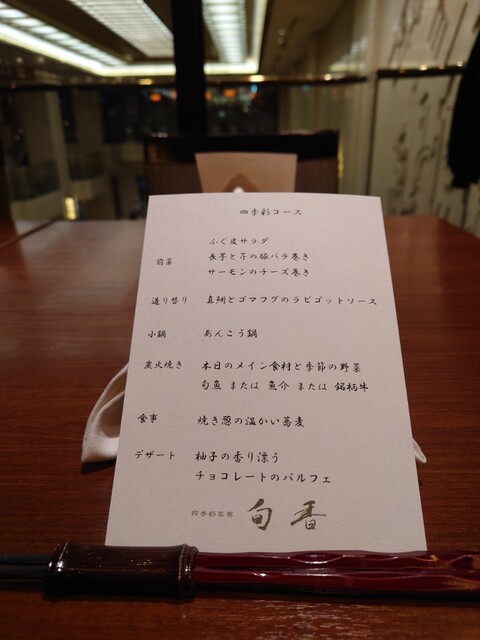 四季彩コース
ふぐ皮サラダ
前菜 長芋と芹の豚バラ巻き
サーモンのチーズ巻き
造り替り 真鯛とゴマフグのラビゴットソース
小鍋 あんこう鍋
炭火焼き 本日のメイン食材と季節の野菜
旬魚 または 魚介 または 銘柄牛
食事 焼き葱の温かい蕎麦
デザート 柚子の香り漂う
チョコレートのパルフェ
四季彩茶寮 旬香